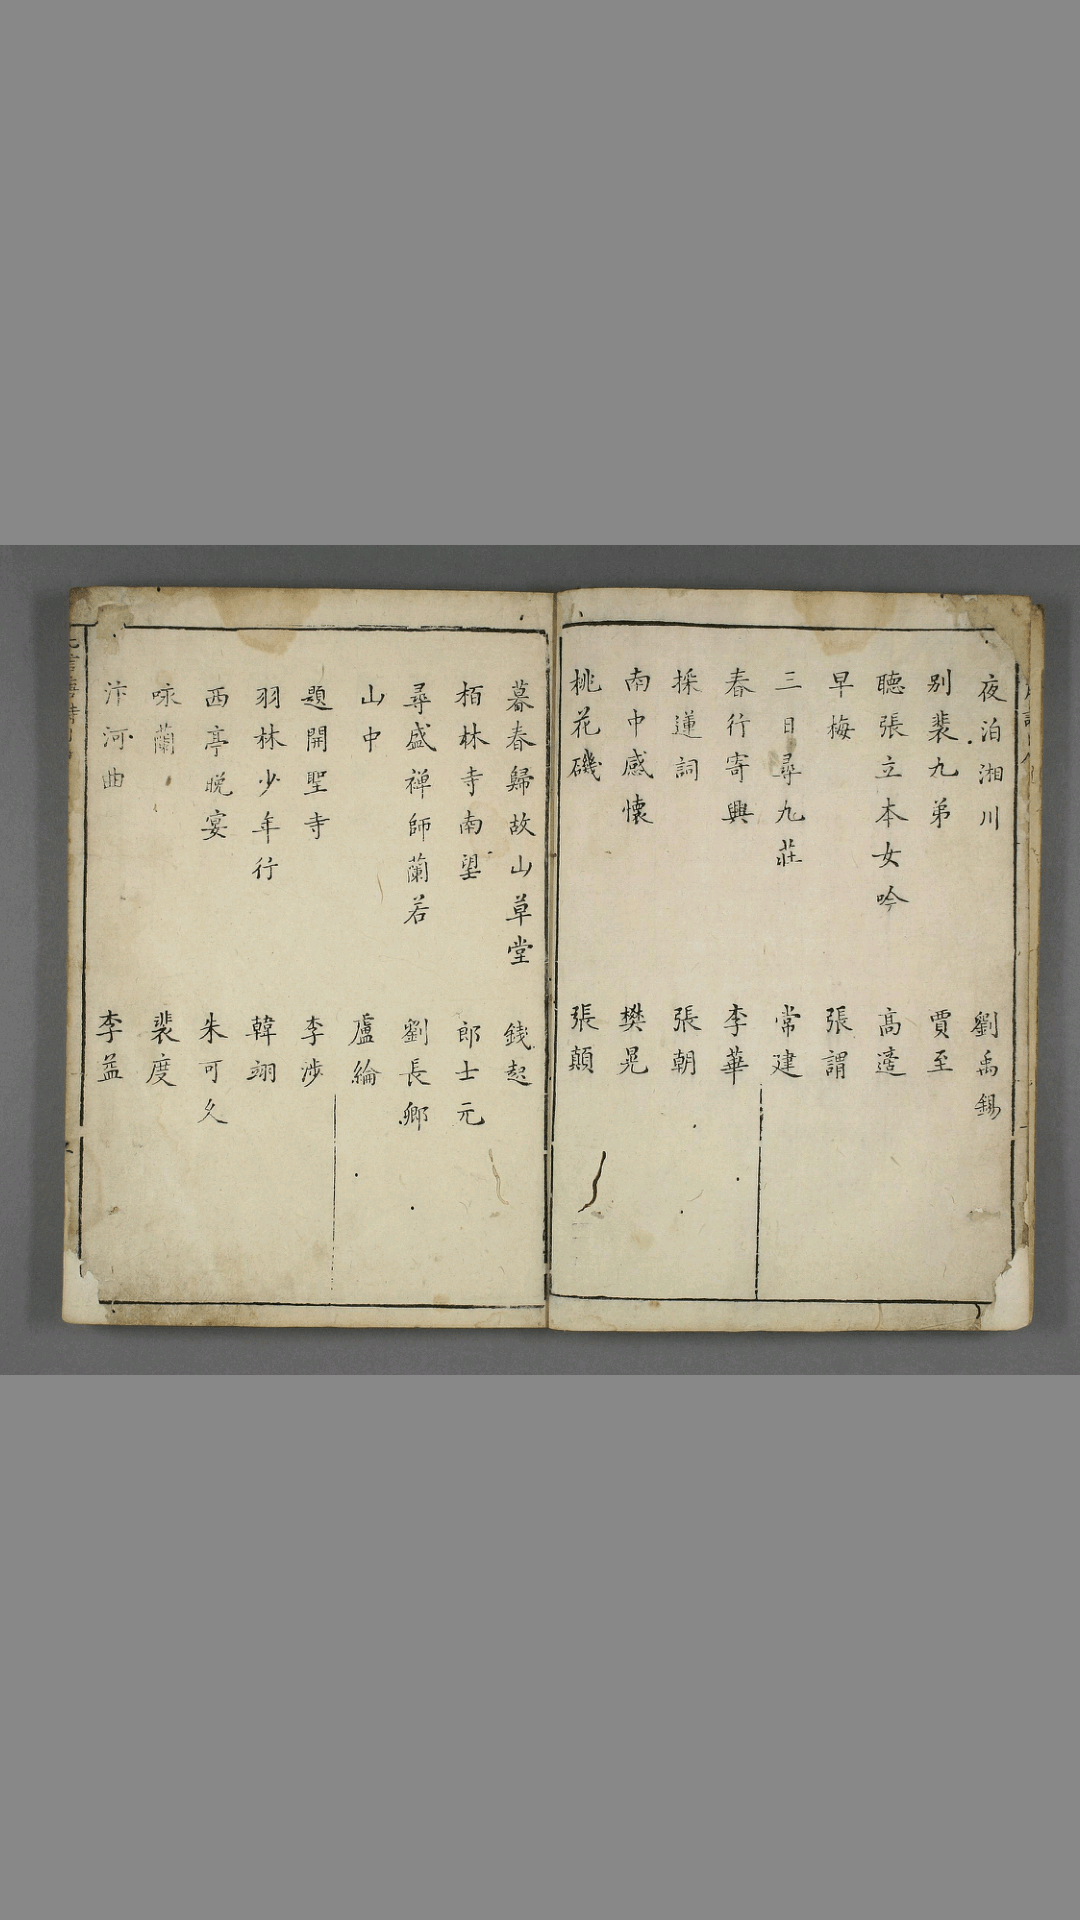 夜泊湘川 劉禹錫
别裴九弟 賈至
聴張立本女吟 高適
早梅 張謂
三日尋九莊 常建
春行寄興 李華
採蓮詞 張朝
南中感懷 樊晃
桃花磯 張顛
暮春歸故山草堂 錢起
栢林寺南望 郎士元
尋盛禅師蘭若 劉長卿
山中 盧綸
題開聖寺 李涉
羽林少年行 韓翊
西亭晩宴 朱可久
咏蘭 裴度
汴河曲 李益